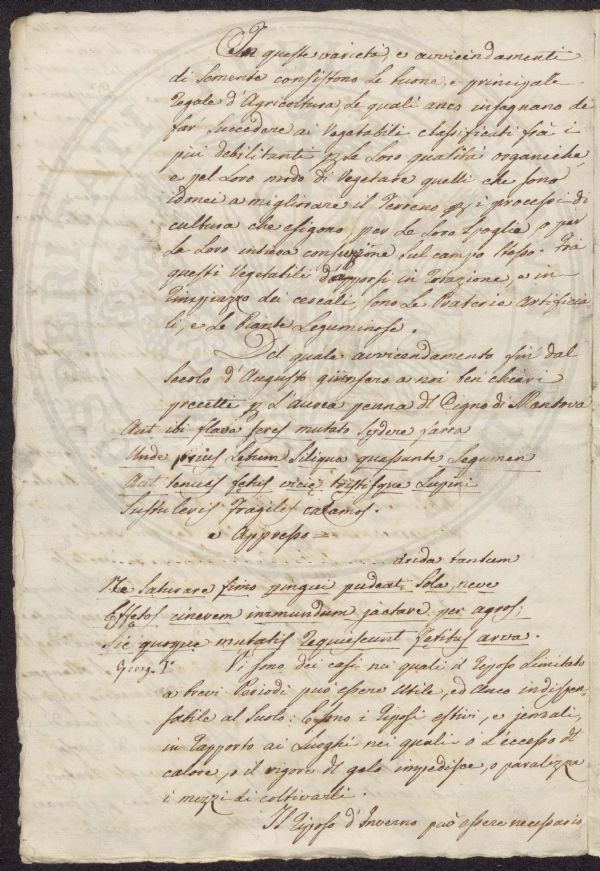 In queste varietá, e avvicendamenti
di Semente consistono le buone, e principali
regole d'Agricoltura, Le quali anco insegnano di
far succedere ai Vegetabili classificati frà i
piú debilitanti p le Loro qualitá organiche,
e pel Loro modo di Vegetare quelli che sono
idonei a migliorare il Terreno p i processi di
cultura che esigono, per Le Loro Spoglie, o per
La Loro intera consuzione sul campo stesso. Frà
questi Vegetabili d'apporsi in rotazione, e in
rimpiazzo dei cereali, sono Le Praterie artificia-
li, e Le Piante Leguminose.
Del quale avvicendamento fin dal
Secolo d'Augusto giunsero a noi ben chiari
precetti p L'aurea penna dl Cigno di Mantova
Aut ibi flava seres mutato sydere farra
Unde prius Letum Siliqua quassante Legumen
Aut tenues fetus vicię tristisque Lupini
Sustuleris fragiles calamos.
e Appresso =
. . . . . . . . . . . . . . . . . arida tantum
Ne saturare fimo pingui pudeat Sola, neve
Effętos cinerem immundum jactare per agros;
Sic quoque mutatis requiescunt fętibus arva.
Georg. I°
Vi sono dei casi ne quali il riposo Limitato
a brevi Periodi può essere utile, ed anco indispen-
sabile al Suolo: E sono i riposi estivi, e jemali,
in rapporto ai Luoghi nei quali o L'eccesso dl
calore, o il rigore dl gelo impedisce, o paralizza
i mezzi di coltivarli.
Il riposo d'Inverno può essere necessario